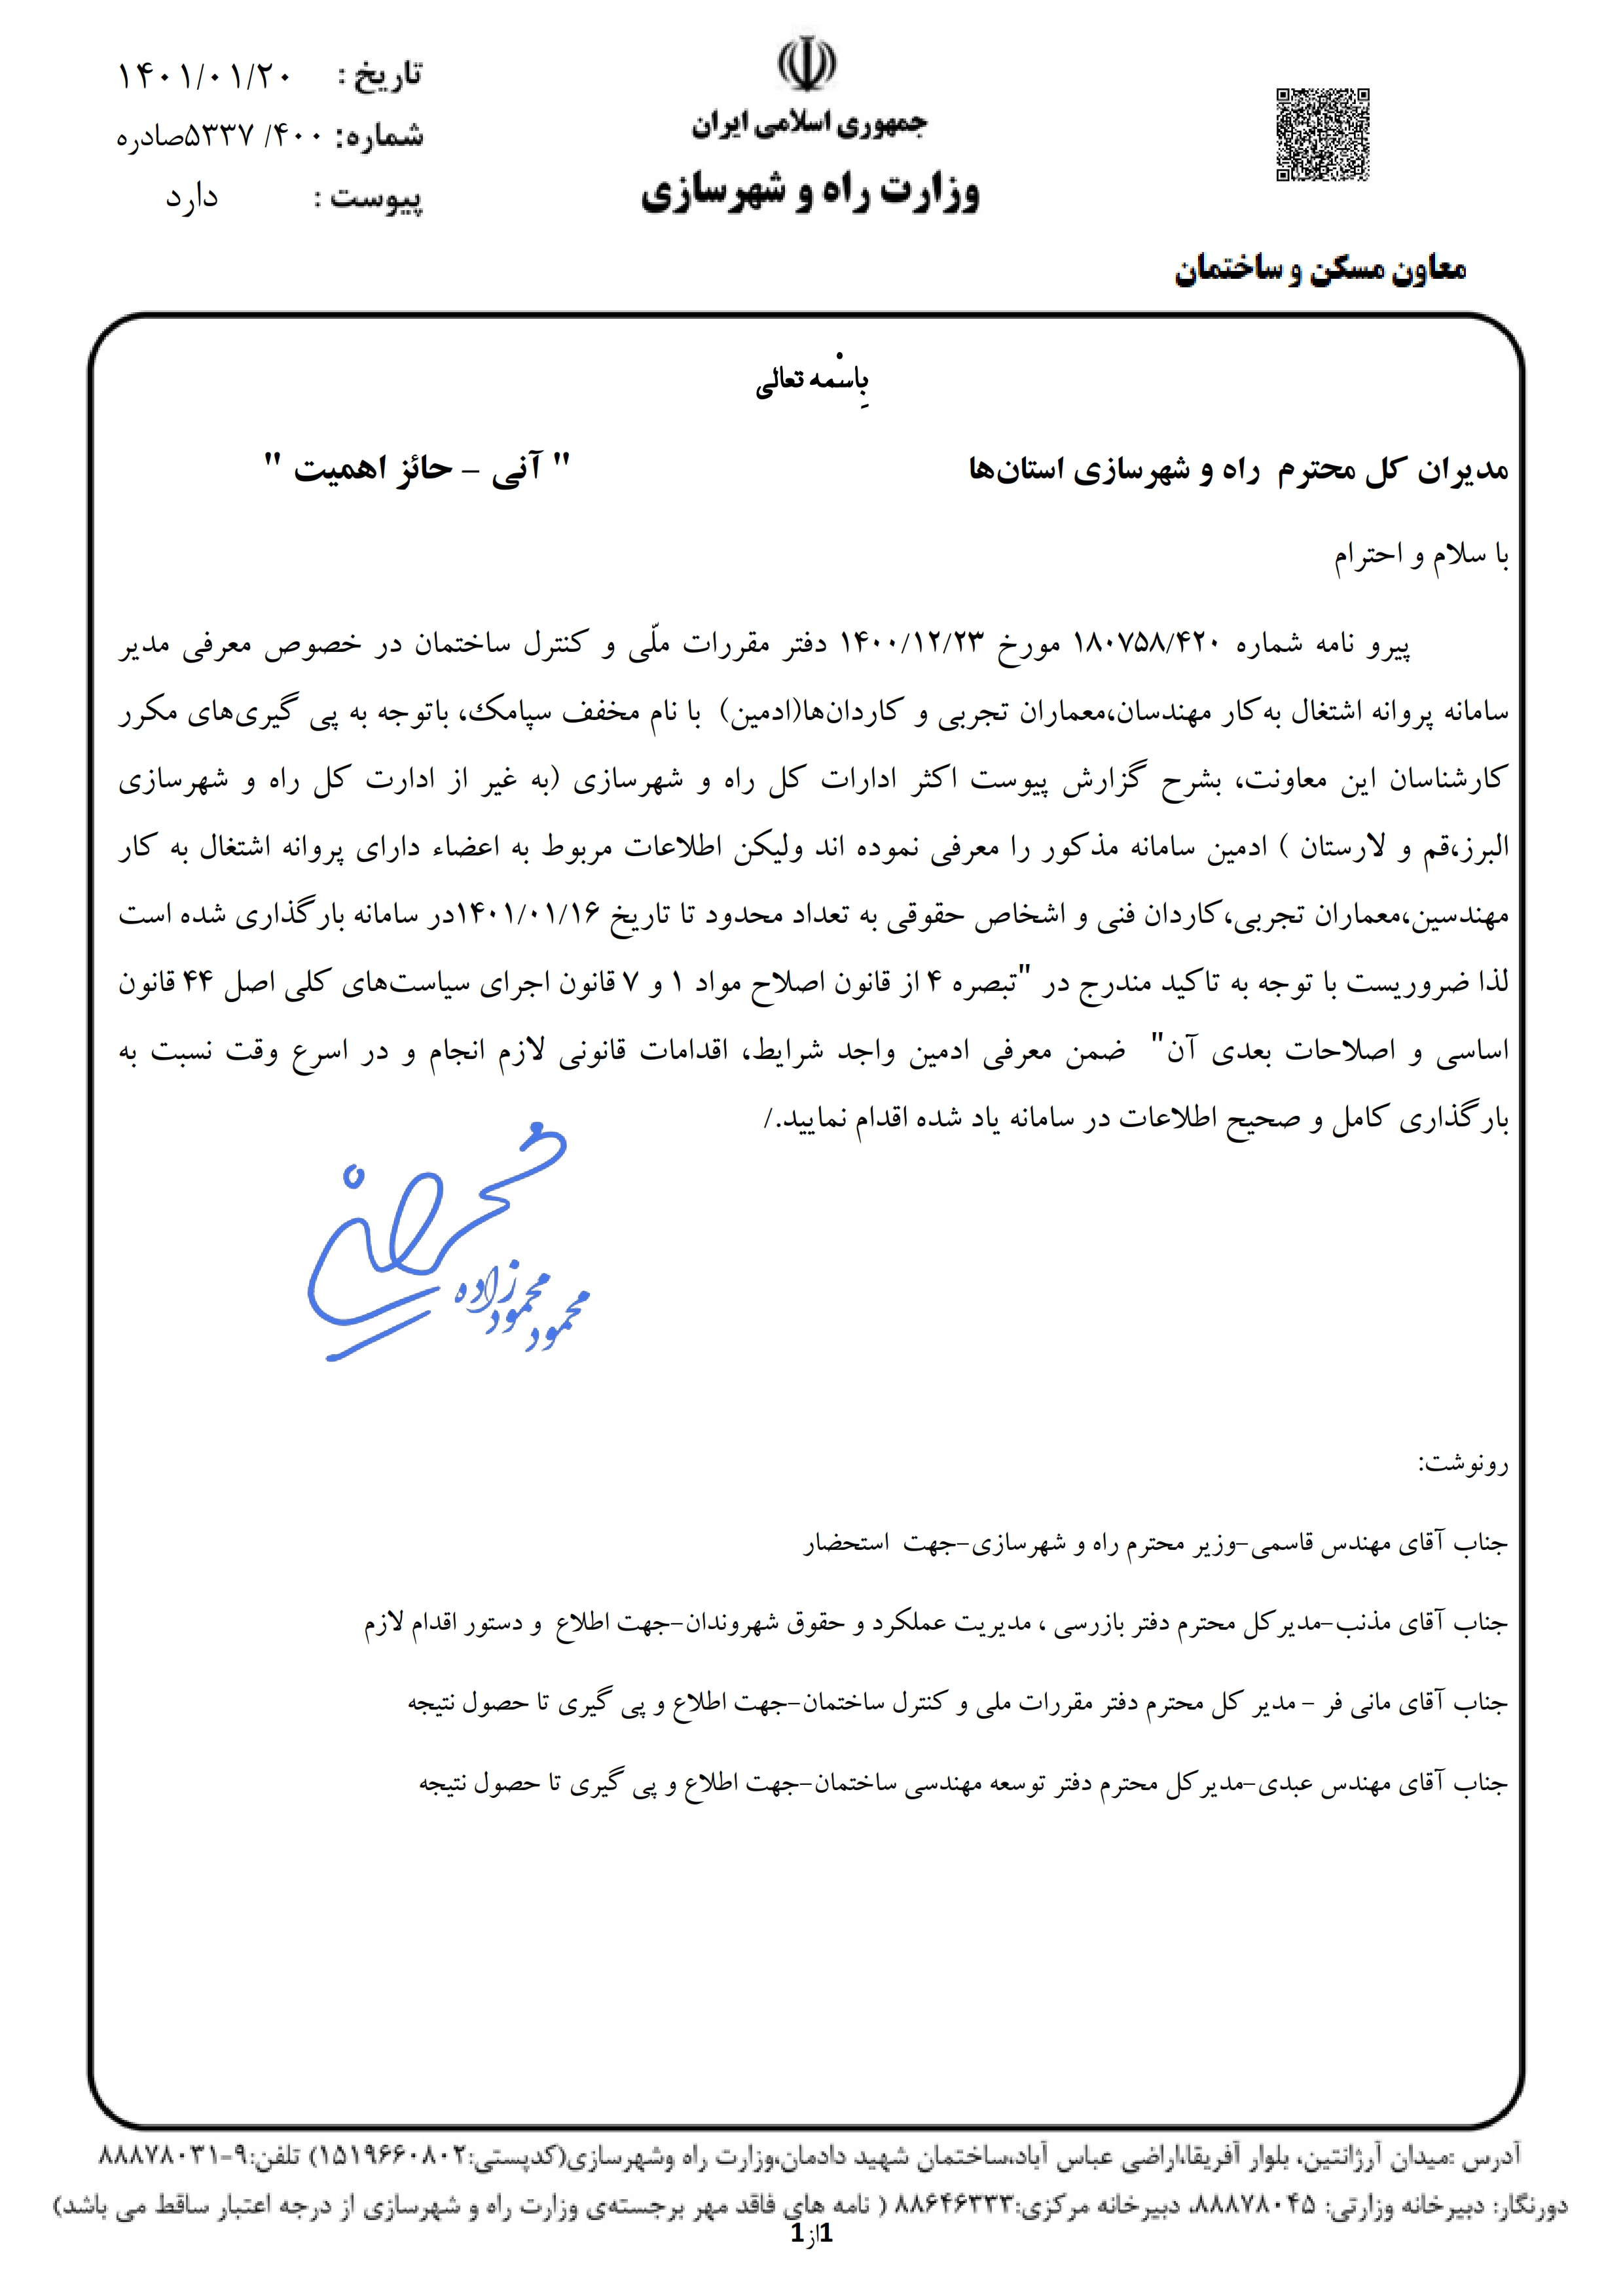 تاریخ : ۱۴۰۱/۰۱/۲۰
شماره: ۴۰۰/ ۵۳۳۷صادره
پیوست : دارد
جمهوری اسلامی ایران
وزارت راه و شهرسازی
معاون مسکن و ساختمان
بِاسْمه تعالی
مدیران کل محترم راه و شهرسازی استان‌ها " آنی – حائز اهمیت "
با سلام و احترام
پیرو نامه شماره ۱۸۰۷۵۸/۴۲۰ مورخ ۱۴۰۰/۱۲/۲۳ دفتر مقررات ملّی و کنترل ساختمان در خصوص معرفی مدیر
سامانه پروانه اشتغال به‌کار مهندسان،معماران تجربی و کاردان‌ها(ادمین) با نام مخفف سپامک، باتوجه به پی گیری‌های مکرر
کارشناسان این معاونت، بشرح گزارش پیوست اکثر ادارات کل راه و شهرسازی (به غیر از ادارت کل راه و شهرسازی
البرز،قم و لارستان ) ادمین سامانه مذکور را معرفی نموده اند ولیکن اطلاعات مربوط به اعضاء دارای پروانه اشتغال به کار
مهندسین،معماران تجربی،کاردان فنی و اشخاص حقوقی به تعداد محدود تا تاریخ ۱۴۰۱/۰۱/۱۶در سامانه بارگذاری شده است
لذا ضروریست با توجه به تاکید مندرج در "تبصره ۴ از قانون اصلاح مواد ۱ و ۷ قانون اجرای سیاست‌های کلی اصل ۴۴ قانون
اساسی و اصلاحات بعدی آن" ضمن معرفی ادمین واجد شرایط، اقدامات قانونی لازم انجام و در اسرع وقت نسبت به
بارگذاری کامل و صحیح اطلاعات در سامانه یاد شده اقدام نمایید./
محمود محمودزاده
رونوشت:
جناب آقای مهندس قاسمی-وزیر محترم راه و شهرسازی-جهت استحضار
جناب آقای مذنب-مدیرکل محترم دفتر بازرسی ، مدیریت عملکرد و حقوق شهروندان-جهت اطلاع و دستور اقدام لازم
جناب آقای مانی فر – مدیر کل محترم دفتر مقررات ملی و کنترل ساختمان-جهت اطلاع و پی گیری تا حصول نتیجه
جناب آقای مهندس عبدی-مدیرکل محترم دفتر توسعه مهندسی ساختمان-جهت اطلاع و پی گیری تا حصول نتیجه
آدرس :میدان آرژانتین، بلوار آفریقا،اراضی عباس آباد،ساختمان شهید دادمان،وزارت راه وشهرسازی(کدپستی:۱۵۱۹۶۶۰۸۰۲) تلفن:۹-۸۸۸۷۸۰۳۱
دورنگار: دبیرخانه وزارتی: ۸۸۸۷۸۰۴۵، دبیرخانه مرکزی:۸۸۶۴۶۳۳۳ ( نامه های فاقد مهر برجسته‌ی وزارت راه و شهرسازی از درجه اعتبار ساقط می باشد)
1از1